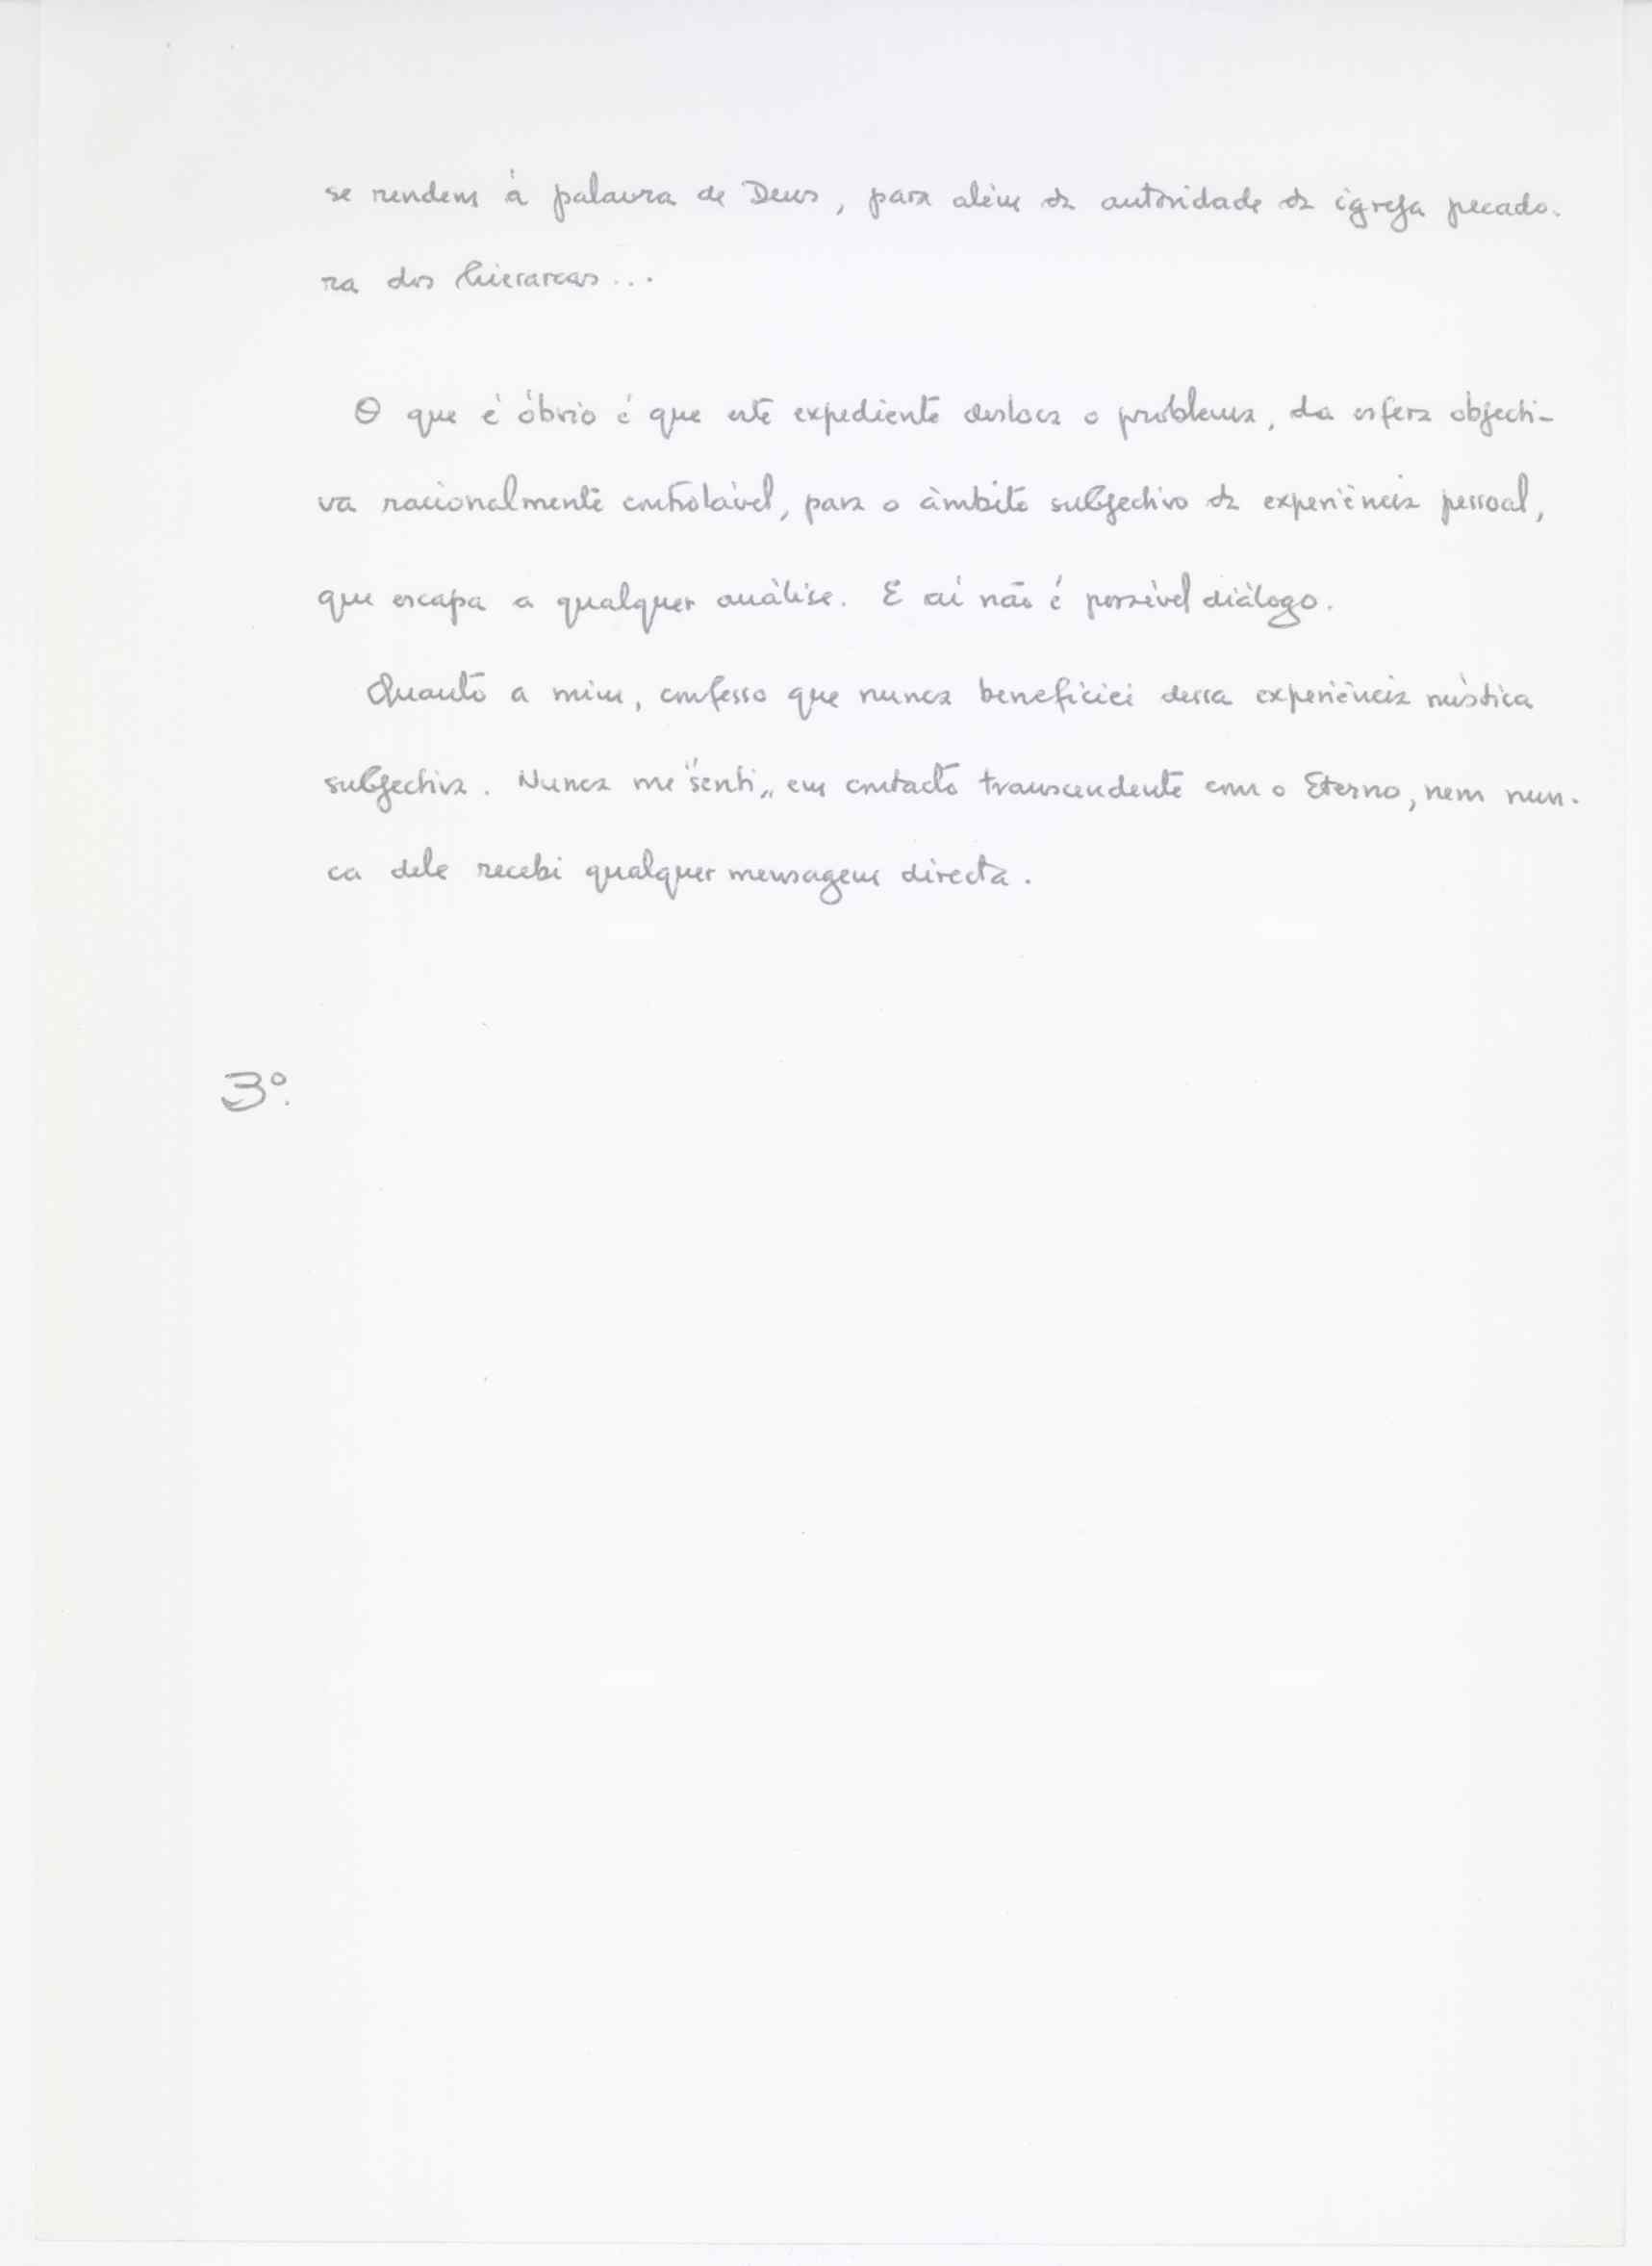 se rendem à palavra de Deus, para além da autoridade da igreja pecado-
ra dos hierarcas...
O que é óbvio é que este expediente desloca o problema, da esfera objecti-
va racionalmente controlável, para o âmbito subjectivo da experiência pessoal,
que escapa a qualquer análise. E aí não é possível diálogo.
Quanto a mim, confesso que nunca beneficiei dessa experiência mística
subjectiva. Nunca me "senti" em contacto transcendente com o Eterno, nem nun-
ca dele recebi qualquer mensagem directa.
3º.